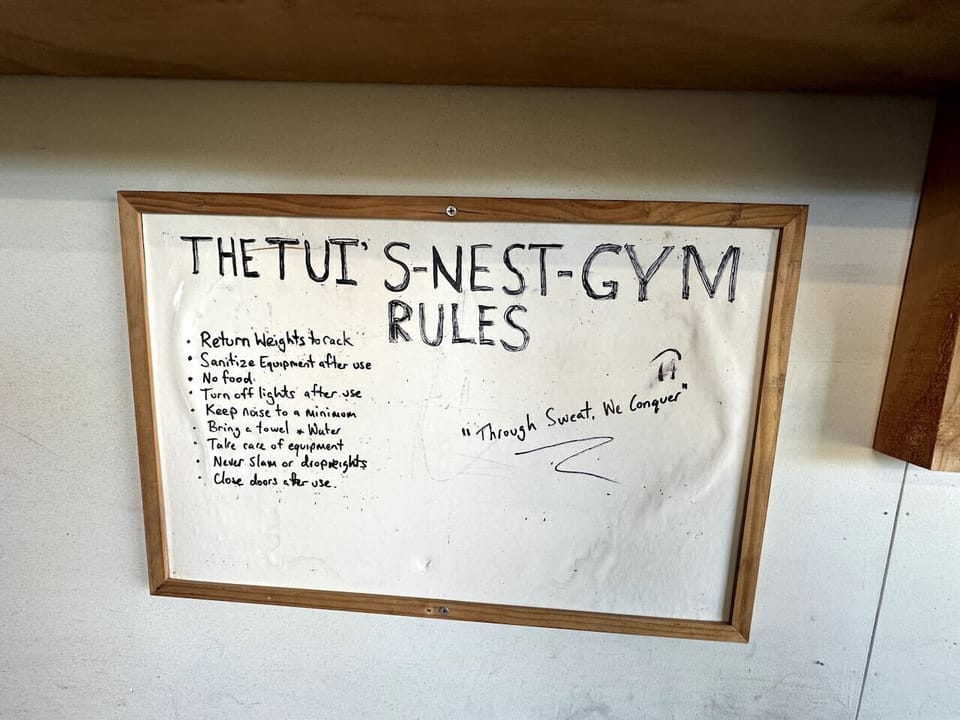 THE TUI'S-NEST-GYM
RULES
• Return Weights to rack
• Sanitize Equipment after use
• No food.
• Turn off lights after use
• Keep noise to a minimum
• Bring a towel + Water
• Take care of equipment
• Never Slam or drop weights
• Close doors after use.
"Through Sweat, We Conquer"